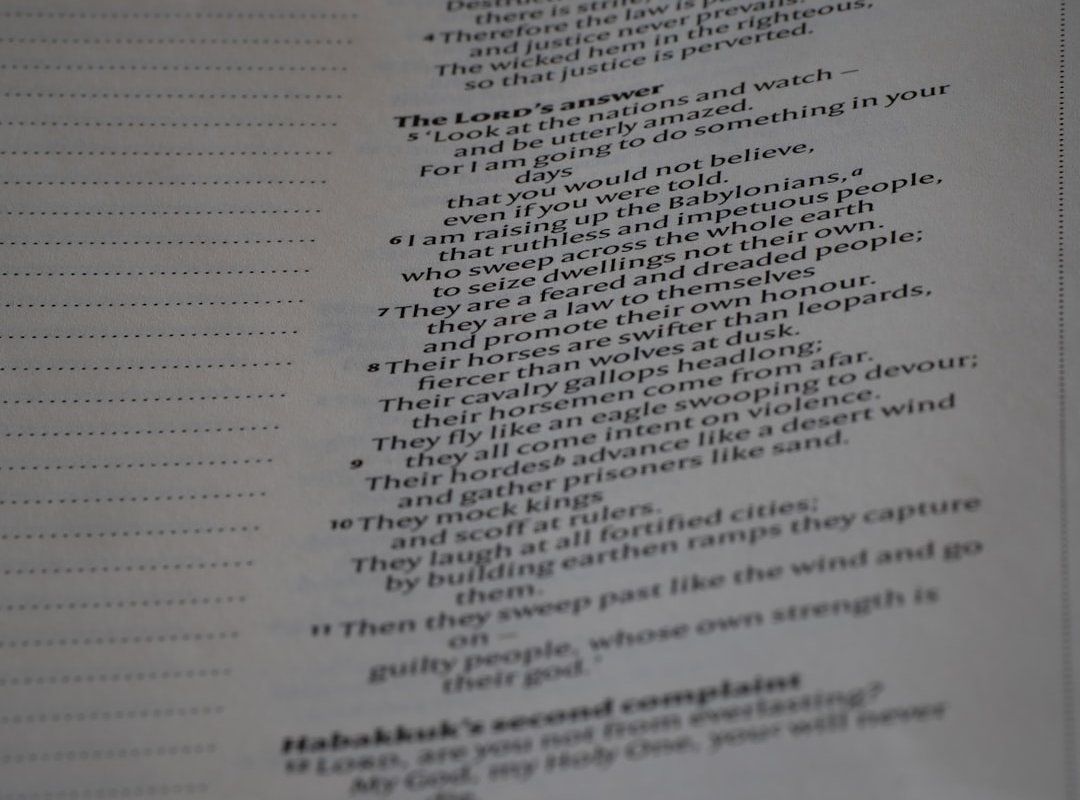 there is strife,
4 Therefore the law is
and justice never prevails.
The wicked hem in the righteous,
so that justice is perverted.
The LORD's answer
5 ‘Look at the nations and watch –
and be utterly amazed.
For I am going to do something in your
days
that you would not believe,
even if you were told.
6 I am raising up the Babylonians,a
that ruthless and impetuous people,
who sweep across the whole earth
to seize dwellings not their own.
7 They are a feared and dreaded people;
they are a law to themselves
and promote their own honour.
8 Their horses are swifter than leopards,
fiercer than wolves at dusk.
Their cavalry gallops headlong;
their horsemen come from afar.
They fly like an eagle swooping to devour;
9 they all come intent on violence.
Their hordesb advance like a desert wind
and gather prisoners like sand.
10 They mock kings
and scoff at rulers.
They laugh at all fortified cities;
by building earthen ramps they capture
them.
11 Then they sweep past like the wind and go
on –
guilty people, whose own strength is
their god.’
Habakkuk's second complaint
12 LORD, are you not from everlasting?
My God, my Holy One, your will never